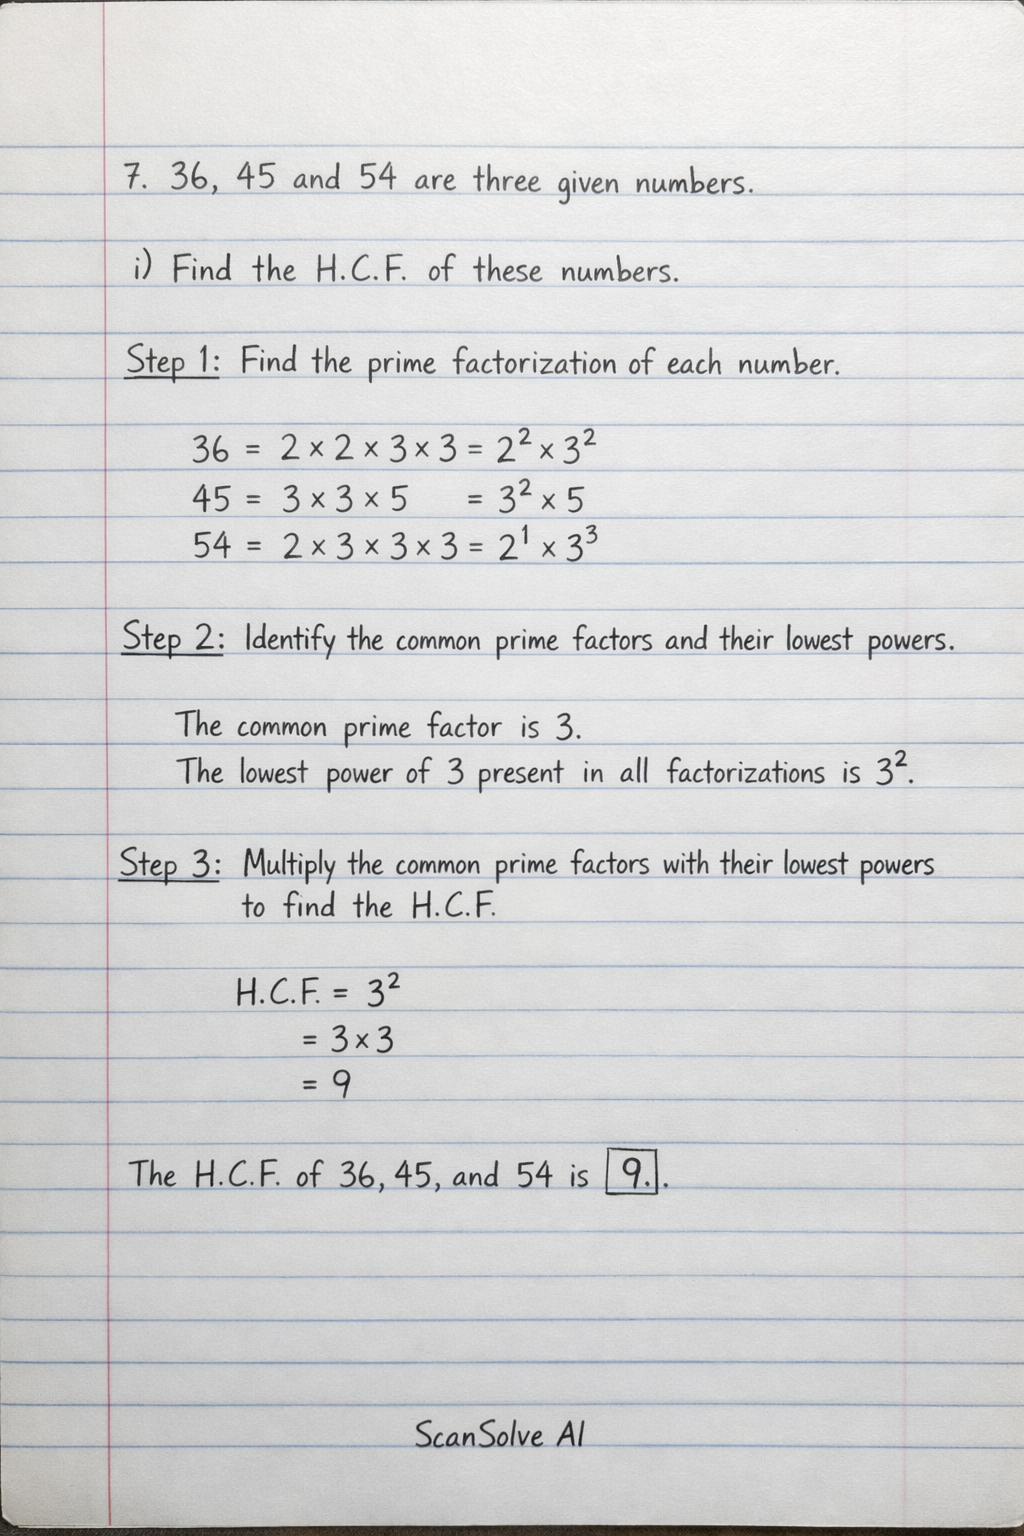 7. 36, 45 and 54 are three given numbers.
i) Find the H.C.F. of these numbers.
Step 1: Find the prime factorization of each number.
36 = 2 × 2 × 3 × 3 = 2² × 3²
45 = 3 × 3 × 5 = 3² × 5
54 = 2 × 3 × 3 × 3 = 2¹ × 3³
Step 2: Identify the common prime factors and their lowest powers.
The common prime factor is 3.
The lowest power of 3 present in all factorizations is 3².
Step 3: Multiply the common prime factors with their lowest powers
to find the H.C.F.
H.C.F. = 3²
= 3 × 3
= 9
The H.C.F. of 36, 45, and 54 is 9..
ScanSolve AI